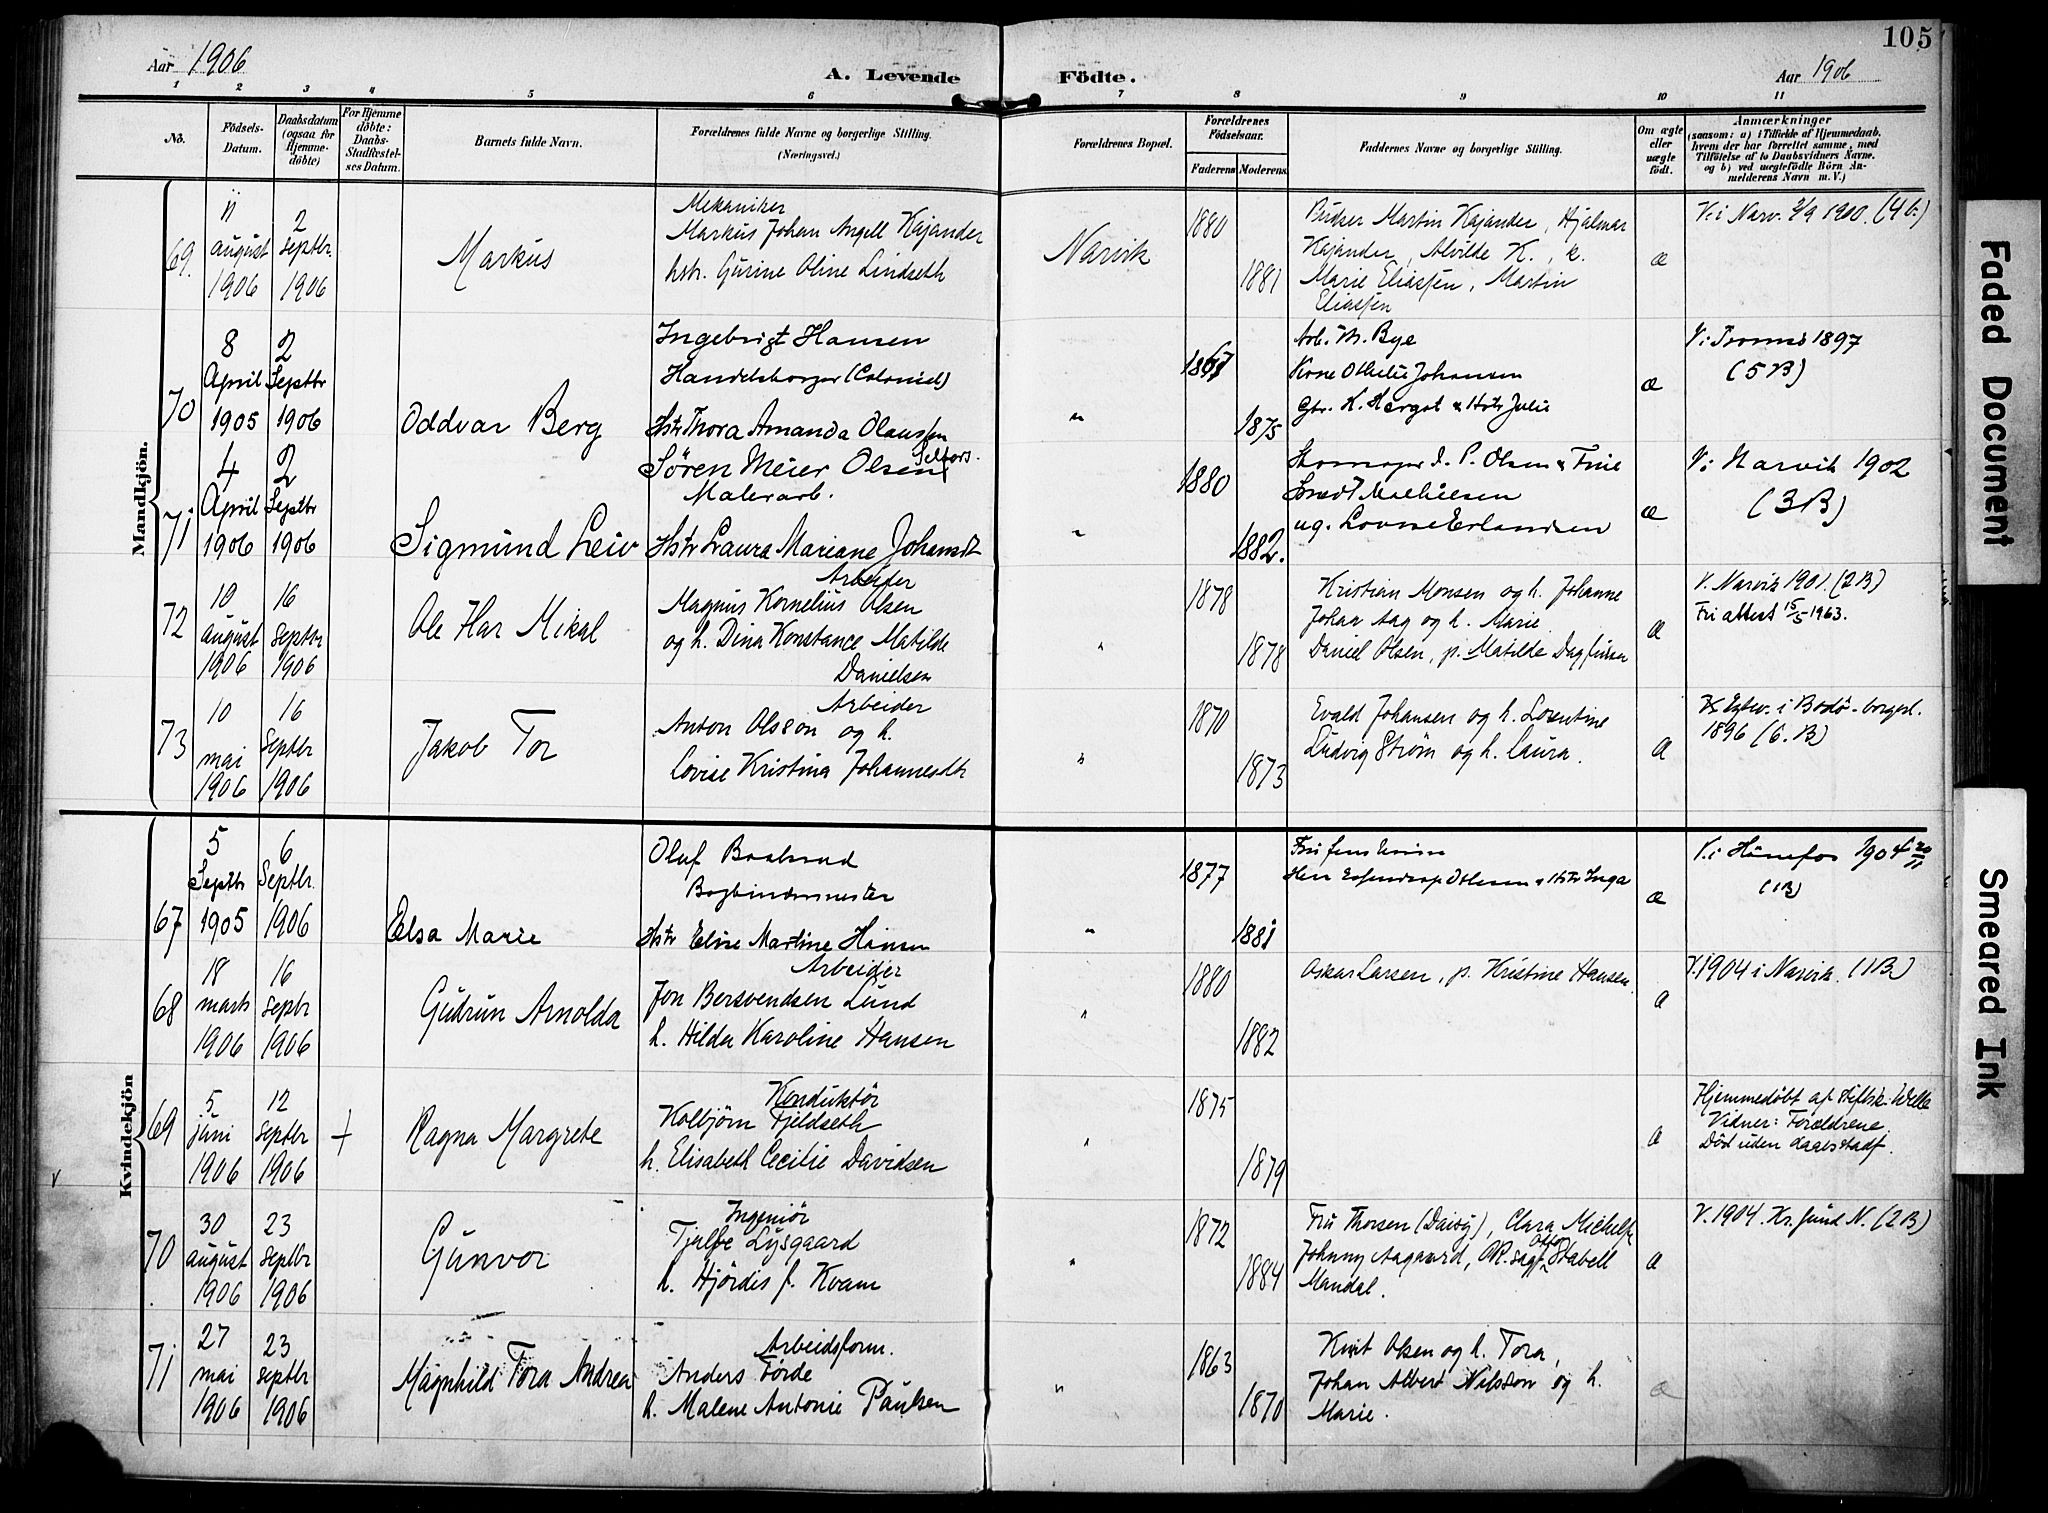 105
Aar 1906
A. Levende
Födte.
Aar 1906
1 2 3 4 5 6 7 8 9 10 11
No.
Födsels-
Datum.
Daabsdatum
(ogsaa for
Hjemme-
döbte)
For Hjemme
döbte:
Daabs-
Stadfæstel-
ses Datum.
Barnets fulde Navn.
Forældrenes fulde Navne og borgerlige Stilling.
(Næringsvei.)
Forældrenes Bopæl.
Forældrenes
Födselsaar.
Faderens
Moderens.
Faddernes Navne og borgerlige Stilling.
Om ægte
eller
uægte
födt.
Anmærkninger
(saasom: a) i Tilfælde af Hjemmedaab,
hvem der har forrettet samme, med
Tilföielse af to Daabsvidners Navne.
og b) ved uægtefödte Börn An-
melderens Navn m. V.)
Mandkjön.
69.
11
august
1906
2
septbr.
1906
Markus
Mekaniker
Markus Johan Angell Kajander
hstr. Gurine Oline Lindseth
Narvik
1880
1881
Martin Kajander, Hjalmar
Kajander, Alvilde K., k.
Marie Eliassen, Martin
Eliassen
æ
V. i Narv. 2/9 1900. (4 b.)
70
8
April
1905
2
Septbr
1906
Oddvar Berg
Ingebrigt Hansen
Handelsborger (Colonial)
Hstr Thora Amanda Olaussen
"
1875
Arb. M. Bye
Kone Othelie Johansen
Gbr. H. Hergot & Hstr Julie
æ
V. i Tromsö 1897
(5 B)
71
4
April
1906
2
Septbr
1906
Sigmund Leiv
Sören Meier Olsen
Malerarb.
Hstr Laura Mariane Johansdt
"
1880
1882.
P. Olsen & Frue
ug. Lovise Erlandsen
æ
V. i Narvik 1902
(3 B)
72
10
august
1906
16
septbr
1906
Ole Har Mikal
Arbeider
Magnus Kornelius Olsen
og h. Dina Konstance Matilde
Danielsen
"
1878
1878
Kristian Monsen og h. Johanne
Johan Aag og h. Marie
Daniel Olsen, p. Matilde Dagfinsen
æ
V. Narvik 1901. (2 B)
Fri attest 15/5 1963.
73
10
mai
1906
16
Septbr
1906
Jakob Tor
Arbeider
Anton Olsson og h.
Lovise Kristina Johannesdtr
"
1870
1873
Evald Johansen og h. Losentine
Ludvig Ström og h. Laura.
æ
i Bodö - borgerl.
1896 (6. B)
Kvindekjön
67
5
Septbr
1905
6
Septbr.
1906
Elsa Marie
Oluf
Bogbindermester
Hstr Elise Martine Hansen
"
1877
1881
& Hstr Inga
æ
V. i Hönefos 1904 20/11
(1 B)
68
18
marts
1906
16
septbr
1906
Gudrun Arnolda
Arbeider
Jon Bersvendsen Lund
h. Hilda Karoline Hansen
"
1880
1882
Oskar Larsen, p. Kristine Hansen.
æ
V. 1904 i Narvik. (1 B.)
69
5
juni
1906
12
septbr
1906
+
Ragna Margrete
Konduktör
Kolbjörn Fjeldseth
h. Elisabeth Cecilie Davidsen
"
1875
1879
æ
Hjemmedöbt af stiftsk. Welle
Vidner: Forældrene
Död uden daabsstadf.
v
70
30
august
1906
23
septbr
1906
Gunvor
Ingeniör
Tjalfe Lysgaard
h. Hjördis f. Kvam
"
1872
1884
Fru Thorsen (Daisy), Clara Michelse
Johnny Aagaard, OR. sagf. Otto Stabell
Mandal.
æ
V. 1904. Kr. sund N. (2 B)
71
27
mai
1906
23
septbr
1906
Magnhild Tora Andrea
Arbeidsform.
Anders Förde
h. Malene Antonie Paulsen
"
1863
1870
Knut Olsen og h. Tora,
Johan Albert Nilsson og h.
Marie.
æ
Faded Document
Smeared Ink